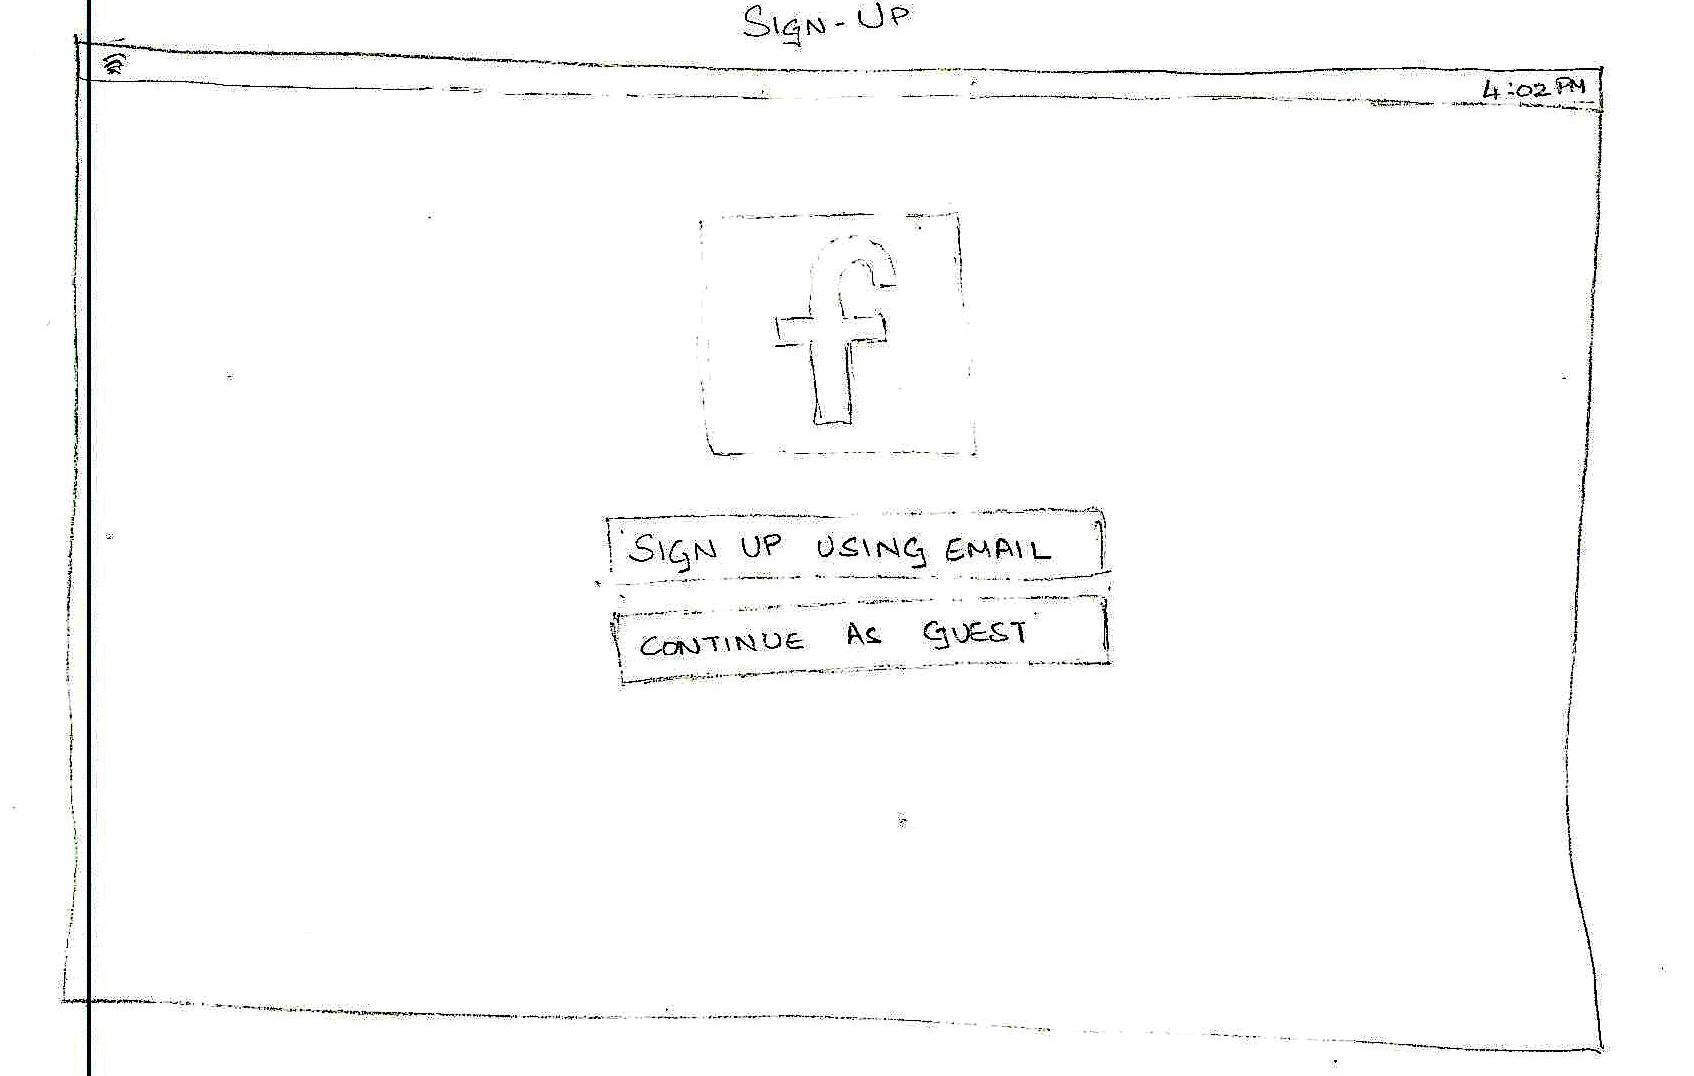 SIGN-UP
4:02 PM
f
SIGN UP USING EMAIL
CONTINUE AS GUEST